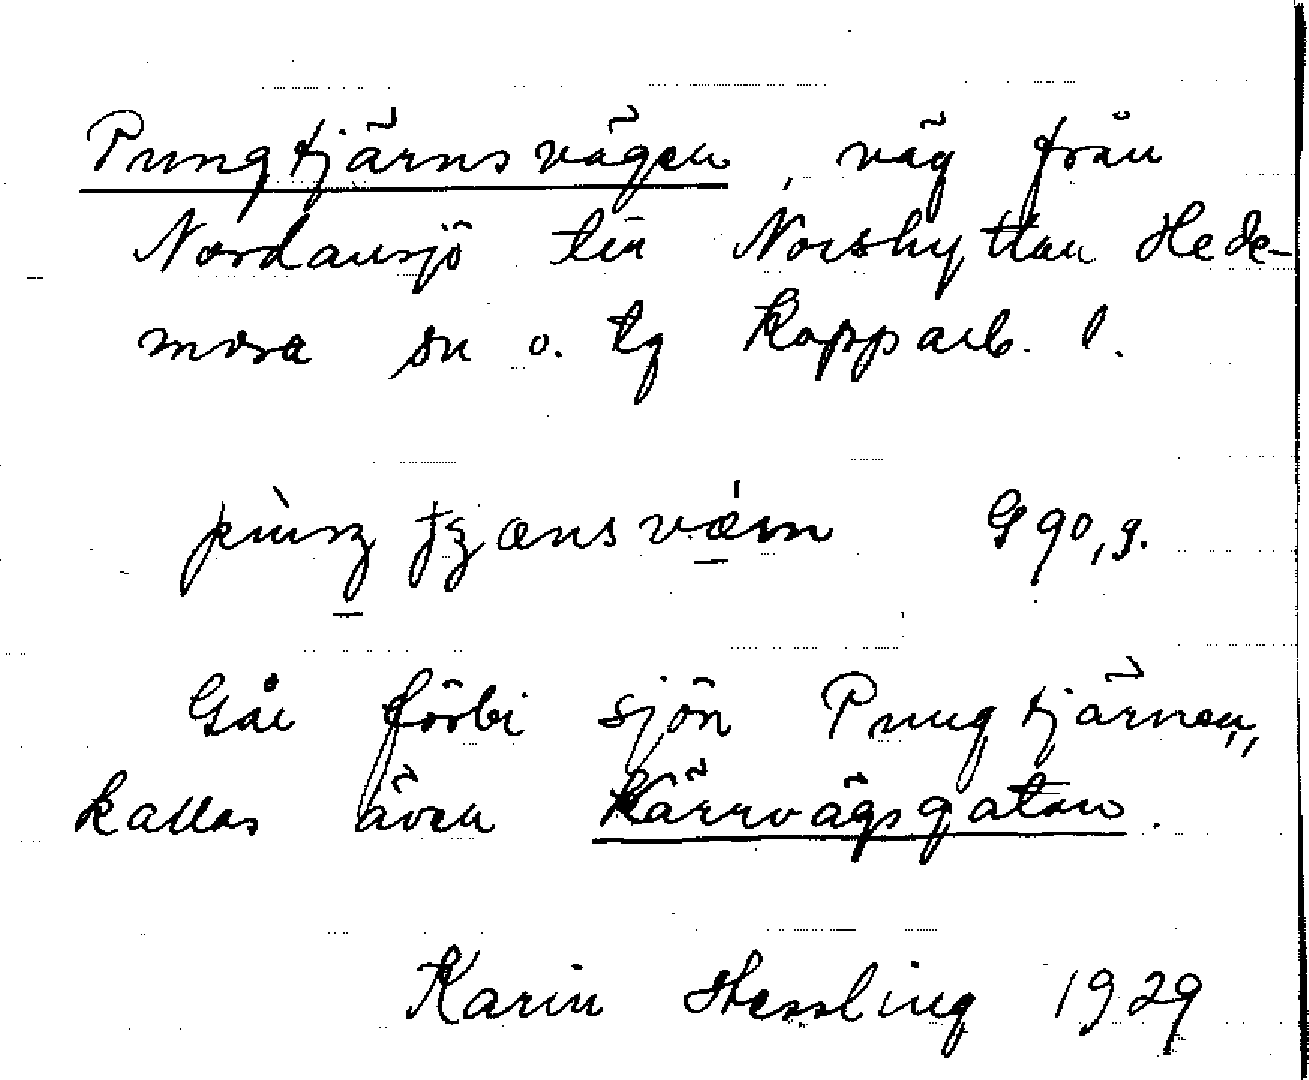 Pungtjärnsvägen, väg från
Nordansjö till Norshyttan Hede-
mora sn o. tg Kopparb. l.
G 90, g.
Går förbi sjön Pungtjärnen,
kallas även Kärrvägsgatan.
Karin Hessling 1929